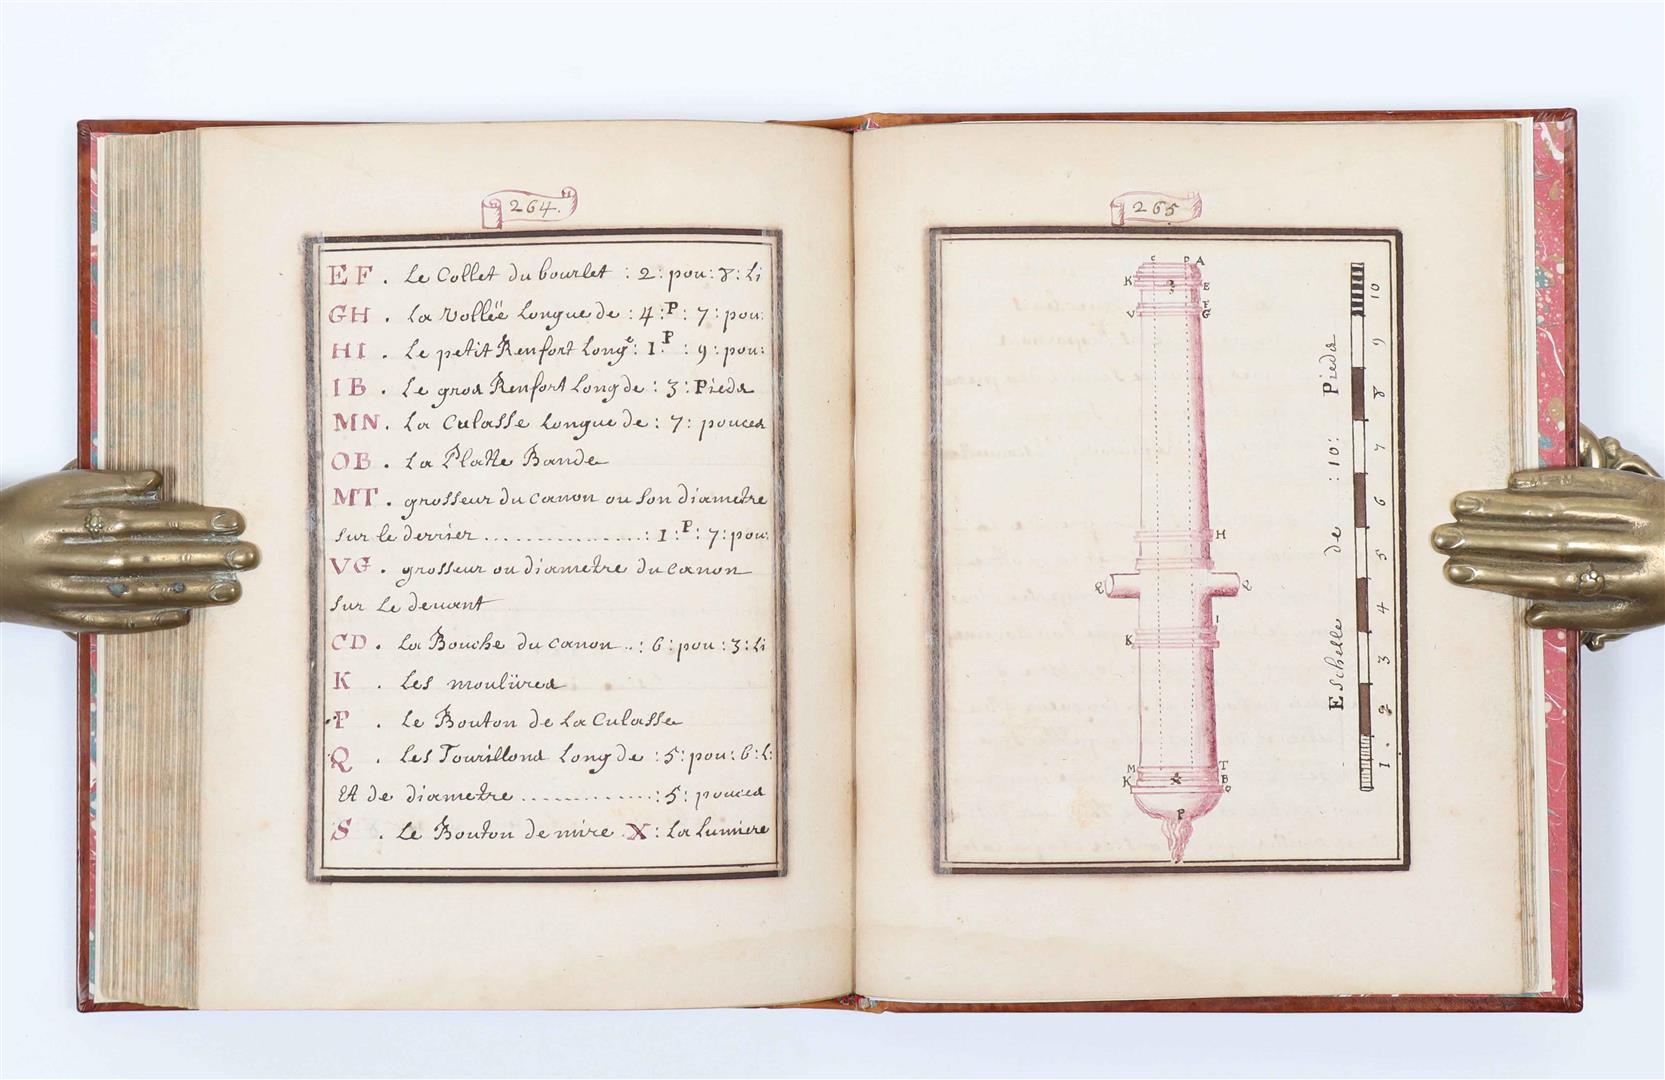 264.
EF. Le Collet du bourlet : 2 : pou : 8 : Li
GH. La Volleë Longue de : 4 : P : 7 : pou :
HI. Le petit Renfort Longe : 1 : P : 9 : pou :
IB. Le gros Renfort Long de : 3 : Pieds
MN. La Culasse Longue de : 7 : pouces
OB. La Platte Bande
MT. grosseur du canon ou son diametre
sur le derrier ................ : 1 : P : 7 : pou :
VG. grosseur ou diametre du canon
sur Le devant
CD. La Bouche du canon .. : 6 : pou : 3 : Li
K. Les moulüres
P. Le Bouton de La Culasse
Q. Les Tourillons Long de : 5 : pou : 6 : L :
Et de diametre ............ : 5 : pouces
S. Le Bouton de mire X : La Lumiere
265
C D A
K S E
F
V G
H
Q Q
I
K
M T
K X B
O
P
Eschelle de : 10 : Pieds
1. 2 3 4 5 6 7 8 9 10